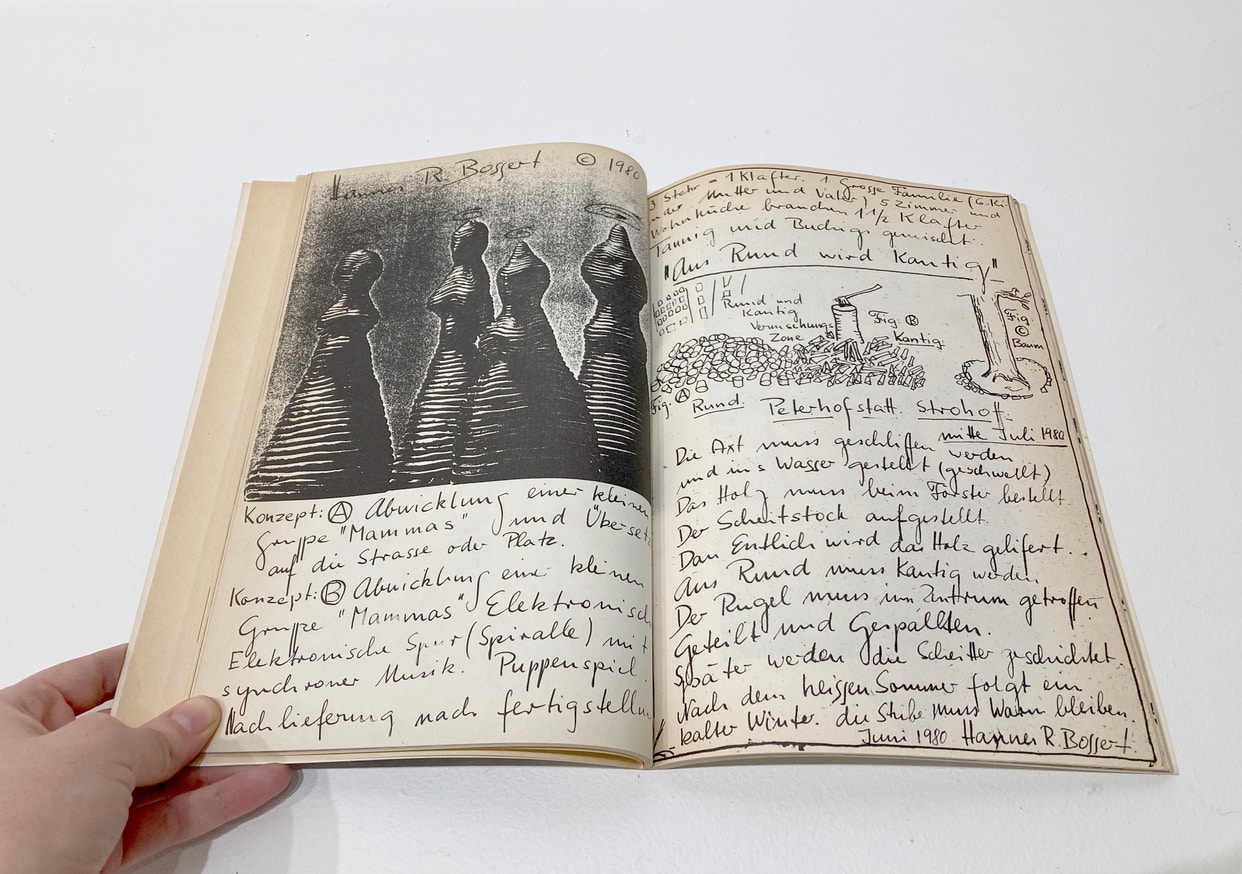 Hannes R. Bossert © 1980
Konzept: Ⓐ Abwicklung einer kleinen
Gruppe "Mammas" und Überset
auf die Strasse oder Platz.
Konzept: Ⓑ Abwicklung einer kleinen
Gruppe "Mammas" Elektronisch
Elektronische Spur (Spiralle) mit
synchroner Musik. Puppenspiel.
Nachlieferung nach fertigstellun
3 Stehr = 1 Klafter. 1 Grosse Familie (6. Ki
nder Mutter und Vater) 5 Zimmer und
Wohnküche brauchen 1 1/2 Klafter
Tannig und Buchig gemischt.
"Aus Rund wird Kantig"
Rund und
Kantig
Vermischungs
Zone
Fig. Ⓑ
Kantig.
Fig.
Ⓒ
Baum
Fig. Ⓐ Rund. Peterhofstatt. Strohof.
mitte Juli 1980
Die Axt muss geschliffen werden
und in's Wasser gestellt (geschwellt)
Das Holz muss beim Förster bestellt.
Der Scheitstock aufgestellt.
Dan Entlich wird das Holz gelifert..
Aus Rund muss Kantig werden.
Der Rugel muss im Zentrum getroffen
Geteilt und Gespälten.
Später werden die Scheitter geschichtet.
Nach dem heissen Sommer folgt ein
kalter Winter. die Stube muss Warm bleiben.
Juni 1980 Hannes R. Bossert.